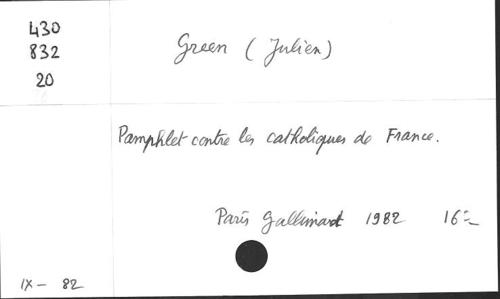 430
832
20
Green (Julien)
Pamphlet contre les catholiques de France.
Paris Gallimard 1982 16º
IX - 82